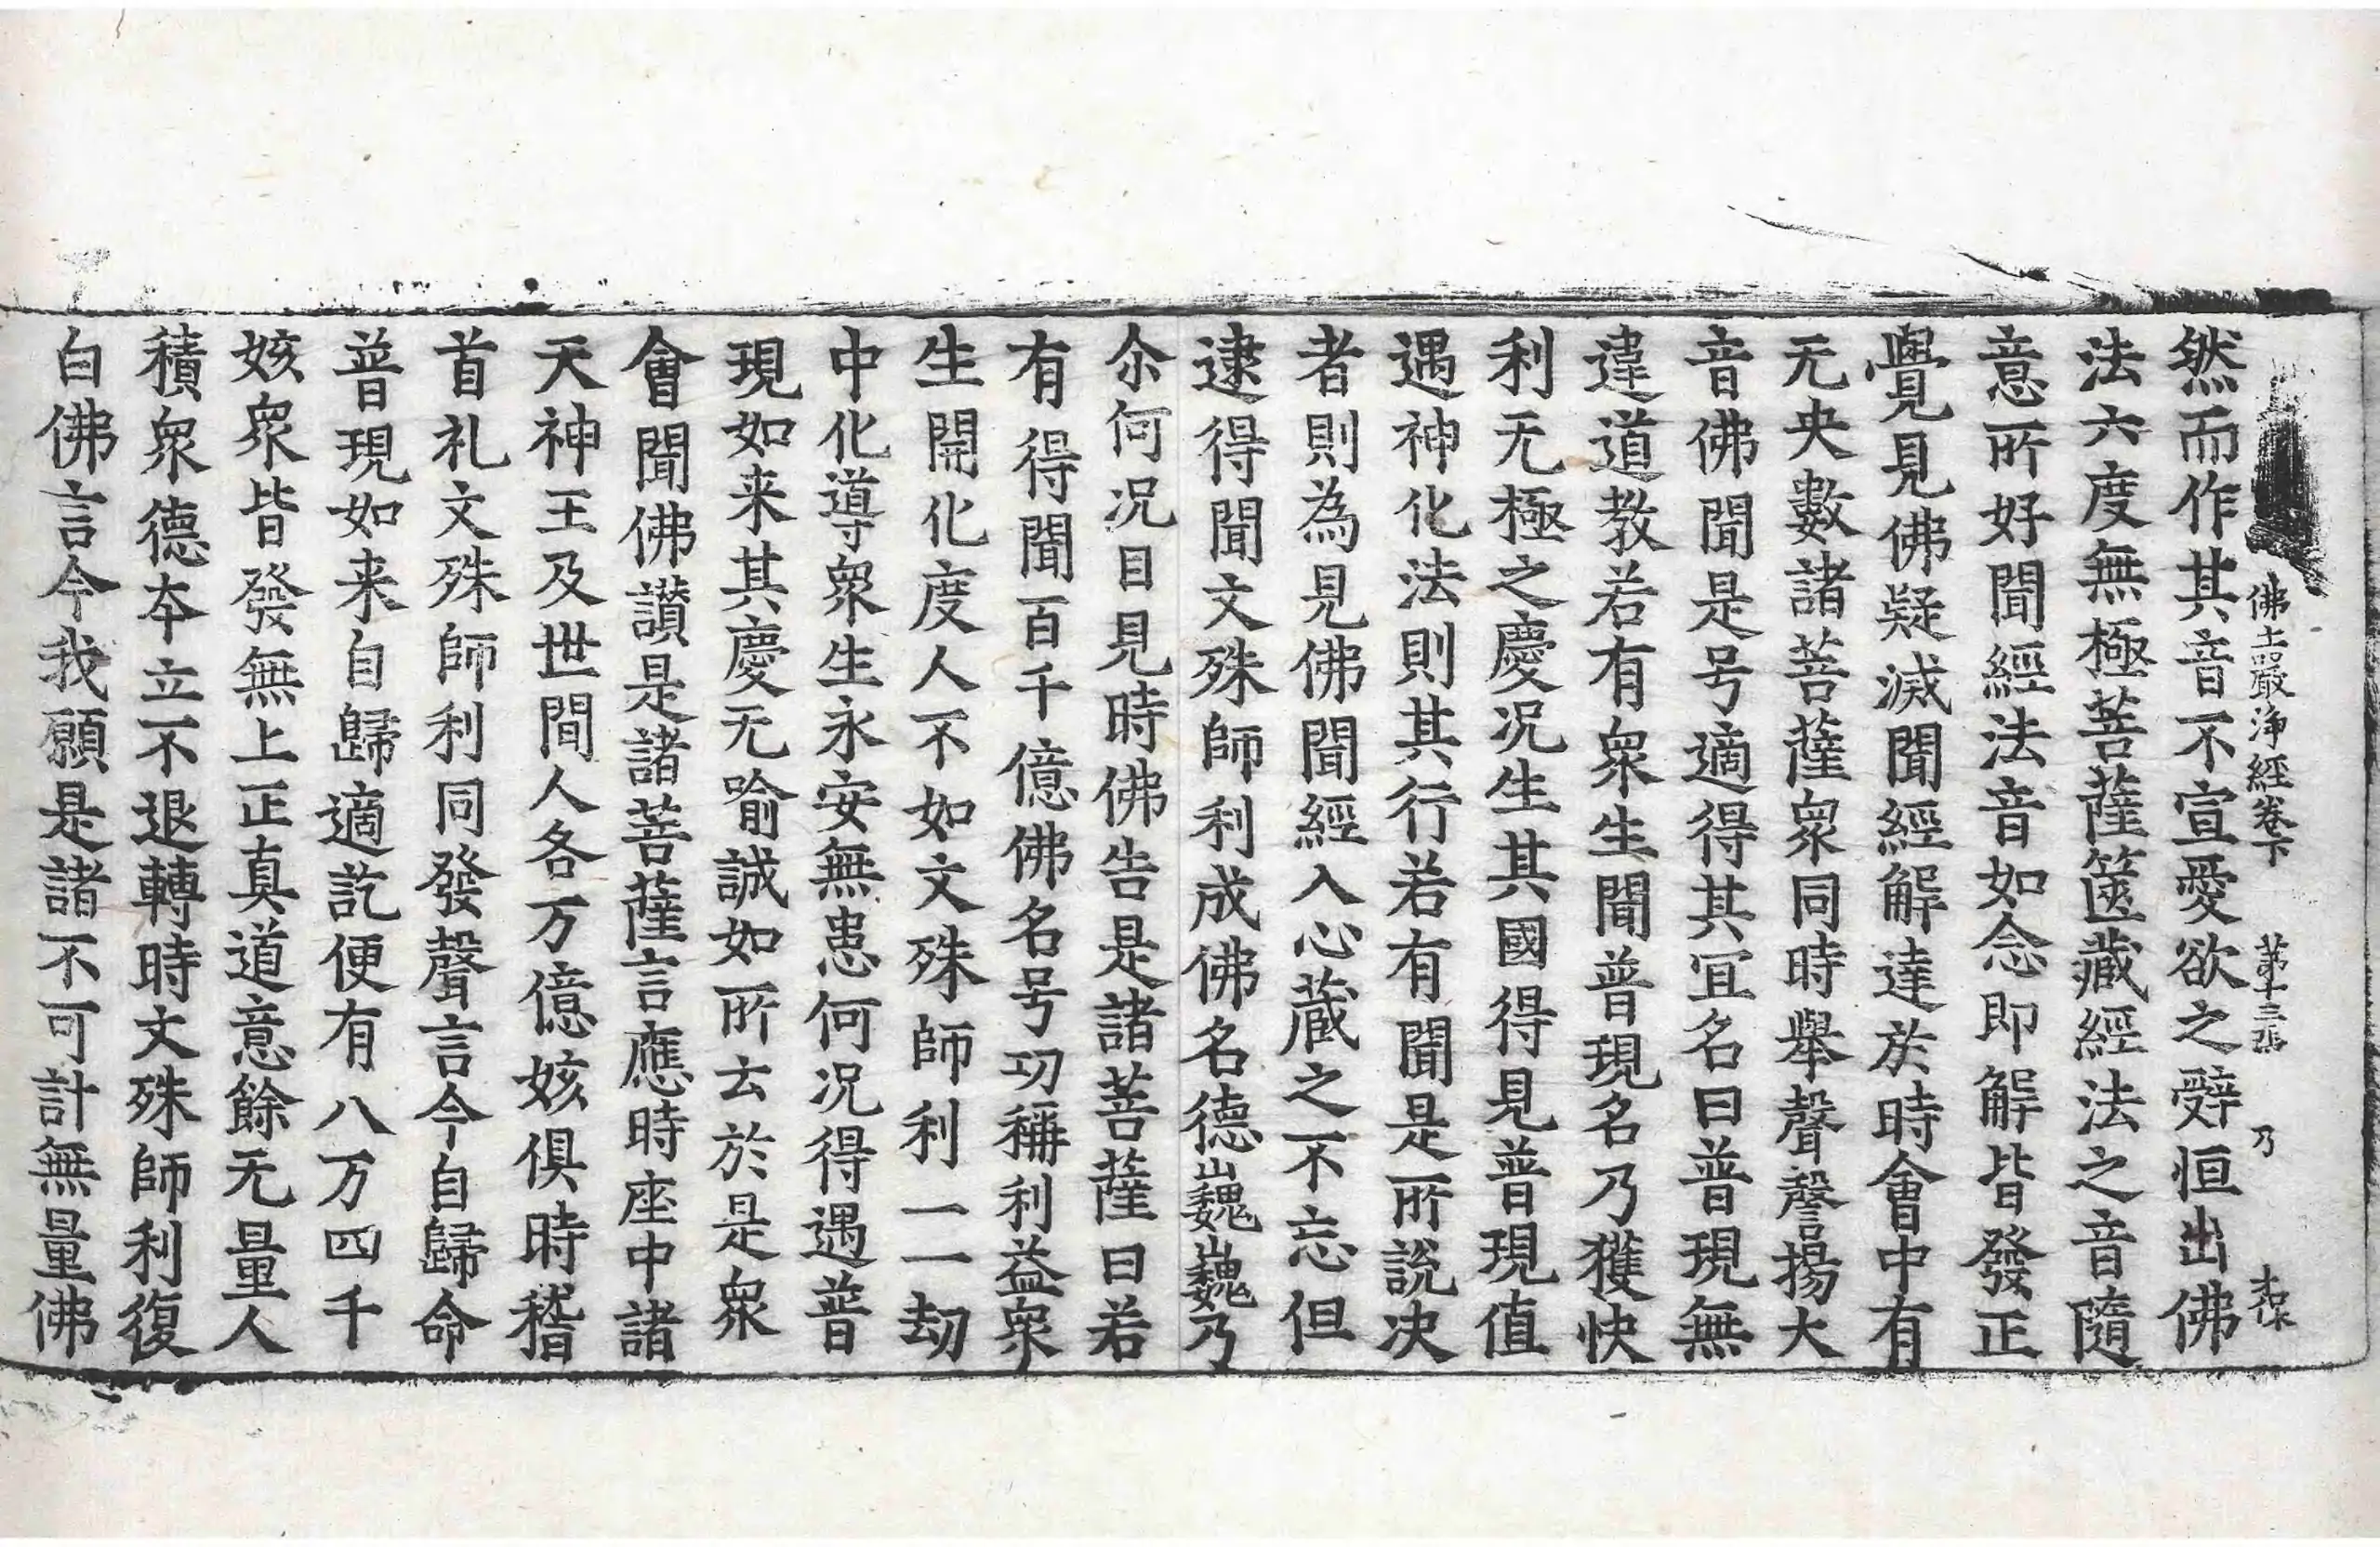 佛土嚴淨經卷下 第十三張 乃
然而作其音不宣愛欲之辤恒出佛
法六度無極菩薩篋藏經法之音隨
意所好聞經法音如念即解皆發正
覺見佛疑滅聞經解達於時會中有
无央數諸菩薩衆同時舉聲謦揚大
音佛聞是号適得其宜名曰普現無
違道教若有衆生聞普現名乃獲快
利无極之慶况生其國得見普現值
遇神化法則其行若有聞是所説决
者則為見佛聞經入心藏之不忘但
逮得聞文殊師利成佛名德巍巍乃
尒何况目見時佛告是諸菩薩曰若
有得聞百千億佛名号功稱利益衆
生開化度人不如文殊師利一一劫
中化導衆生永安無患何况得遇普
現如来其慶无喻誠如所云於是衆
會聞佛讃是諸菩薩言應時座中諸
天神王及世間人各万億姟俱時稽
首礼文殊師利同發聲言今自歸命
普現如来自歸適訖便有八万四千
姟衆皆發無上正真道意餘无量人
積衆德夲立不退轉時文殊師利復
白佛言今我願是諸不可計無量佛